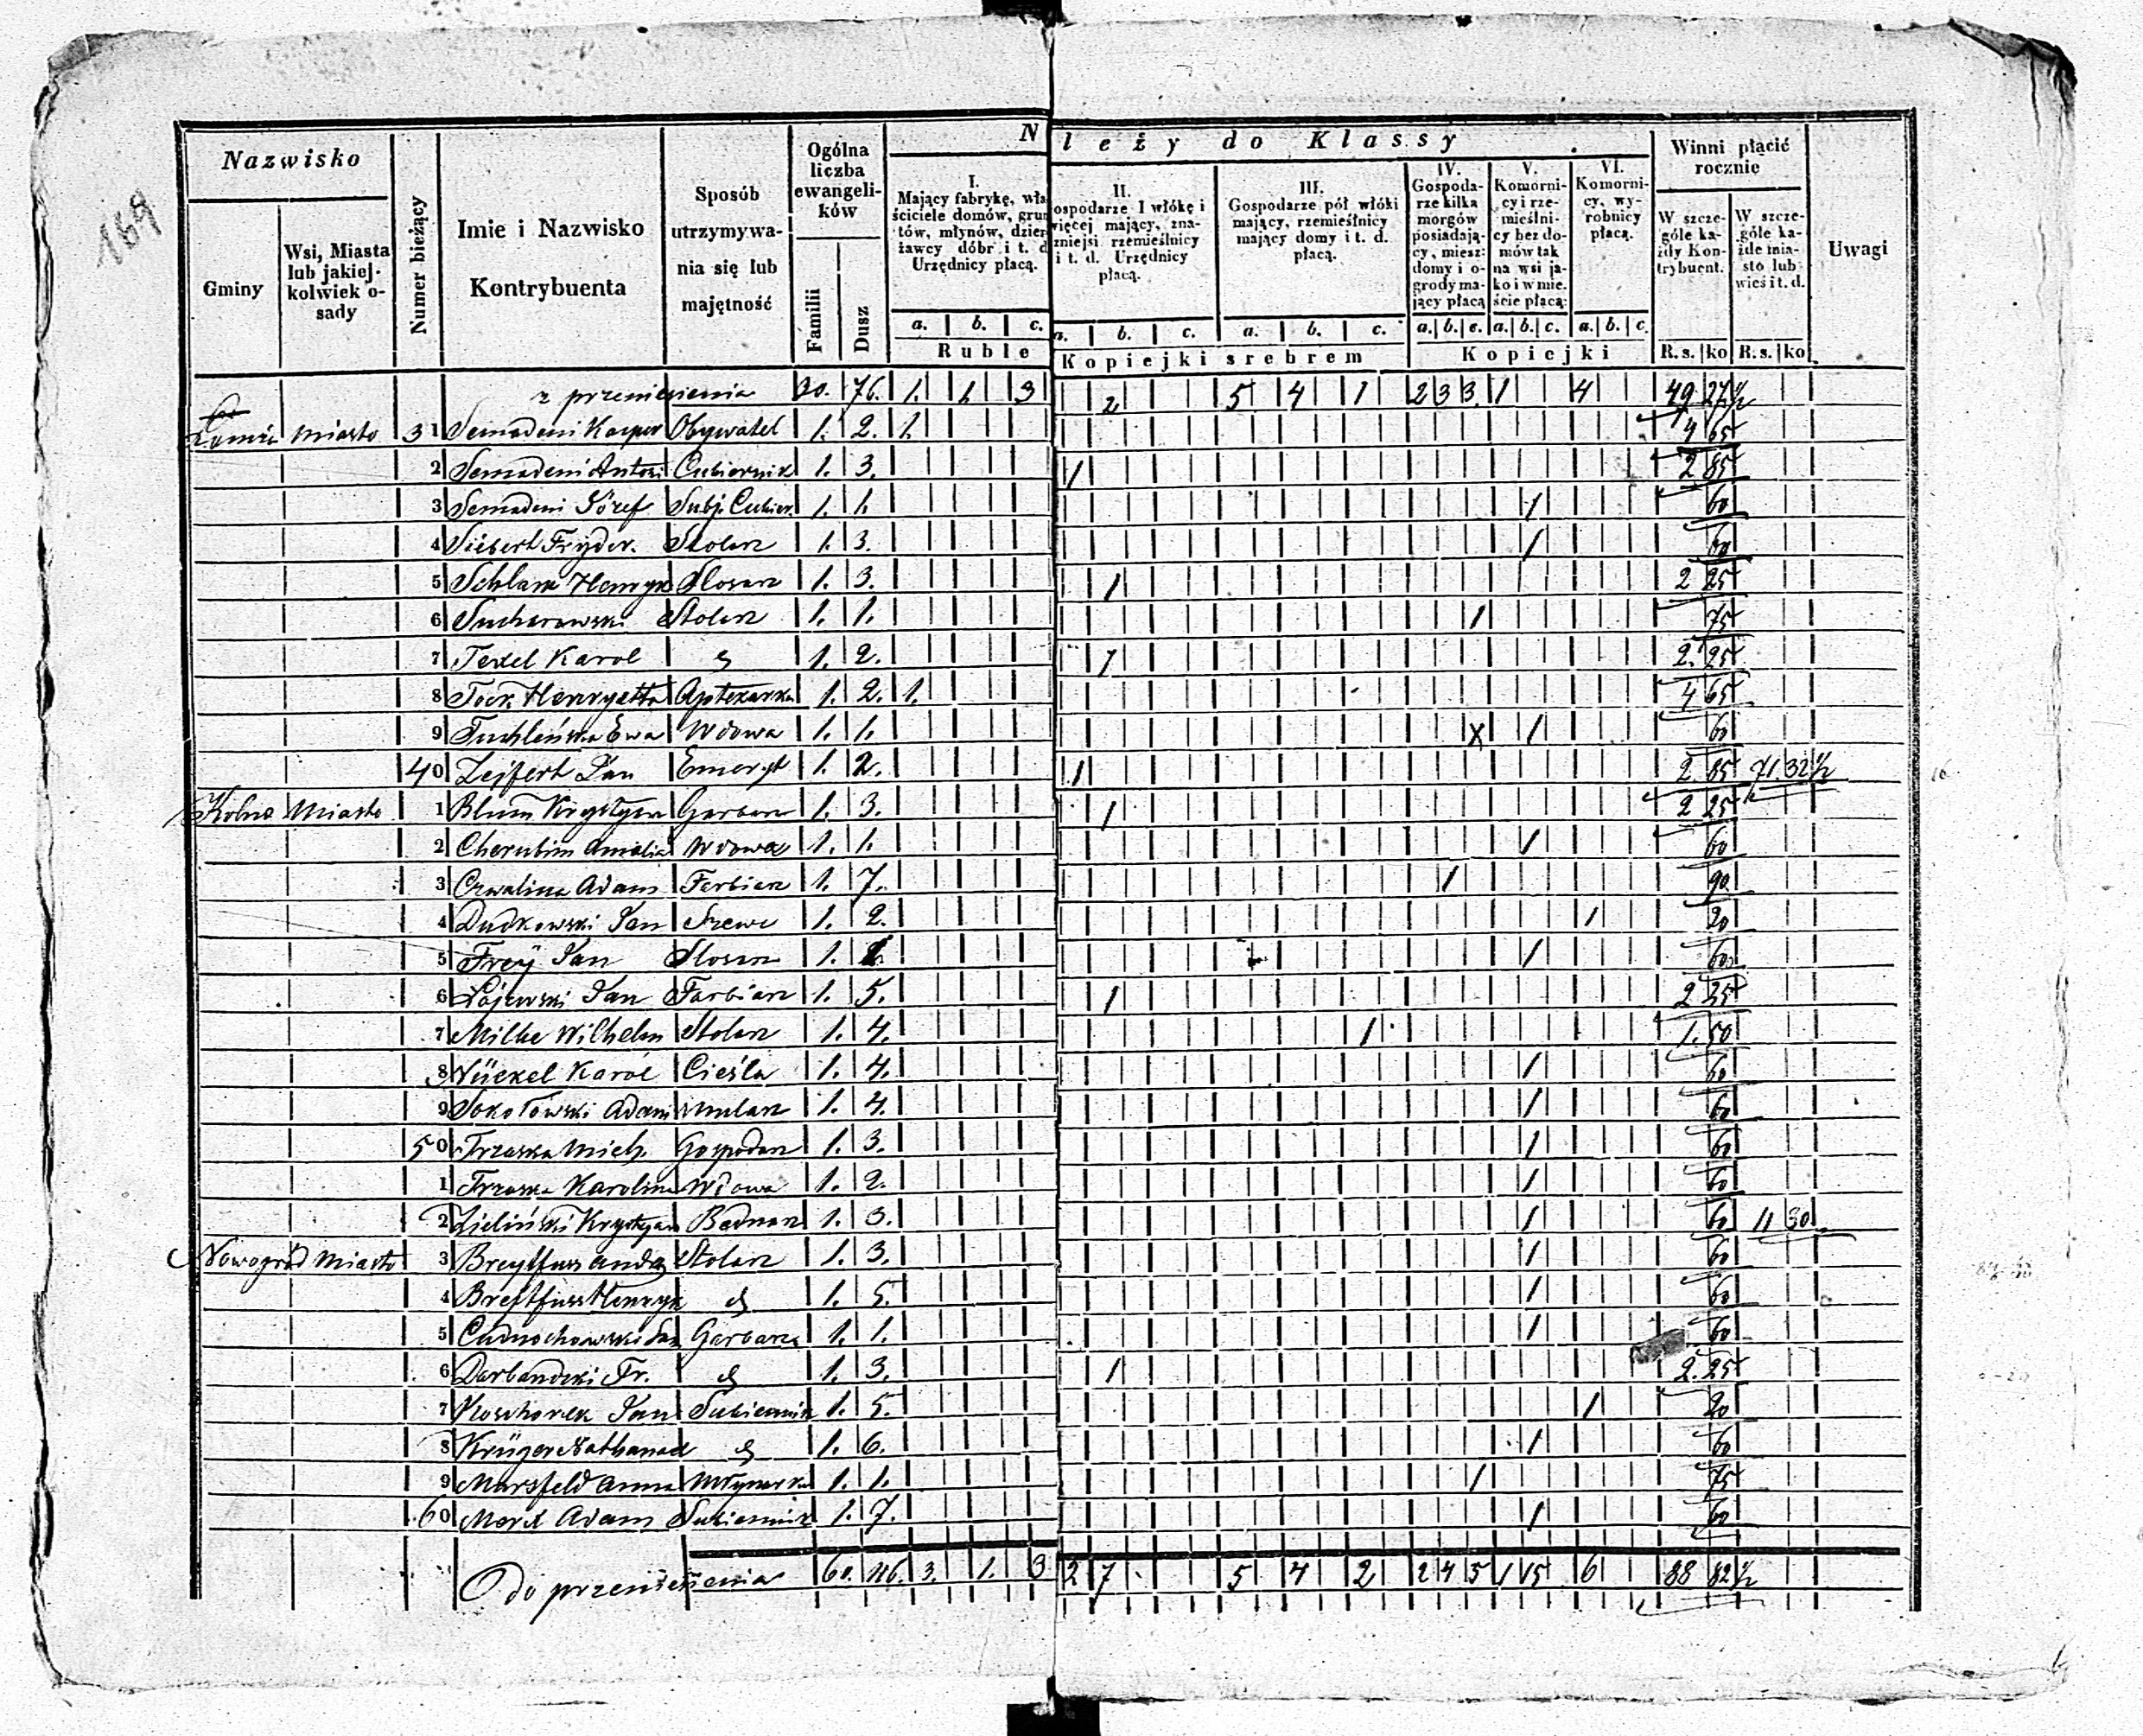 169
Nazwisko
Gminy
Wsi, Miasta lub jakiej-kolwiek o-sady
Numer bieżący
Imie i Nazwisko Kontrybuenta
Sposób utrzymywa-nia się lub majętność
Ogólna liczba ewangeli-ków
Familii
Dusz
N leży do Klassy
I. Mający fabrykę, wła ściciele domów, grun tów, młynów, dzier żawcy dóbr i t. d Urzędnicy płacą.
II. ospodarze 1 włókę i więcej mający, zna-zniejsi rzemieślnicy i t. d. Urzędnicy płacą.
III. Gospodarze pół włóki mający, rzemieślnicy mający domy i t. d. płacą.
IV. Gospoda-rze kilka morgów posiadają-cy, miesz: domy i o-grody ma-jący płacą
V. Komorni-cy i rze-mieślni-cy bez do-mów tak na wsi ja-ko i w mie. ście płacą:
VI. Komorni-cy, wy-robnicy płacą.
Winni płącić rocznie
W szcze-góle ka-żdy Kon-trybuent.
W szcze-góle ka-żde mia-sto lub wieś i t. d.
Uwagi
a. b. c. a. b. c. a. b. c. a. b. c. a. b. c. a. b. c.
Ruble Kopiejki srebrem Kopiejki R. s. ko R. s. ko
z przeniesienia 30. 76. 1. 1. 3 2 5 4 1 2 3 3. 1 4 49 27 ½
Łomża Miasto 31 Semadeni Kacper Obywatel 1. 2. 1. 4 65
2 Semadeni Antoni Cukiernik 1. 3. 1 2 85
3 Semadeni Józef Subj. Cukier. 1. 1. 1 60
4 Siebert Fryder. Stolarz 1. 3. 1 60
5 Schlam Henryk Slosarz 1. 3. 1 2 25
6 Sucharowski Stolarz 1. 1. 1 75
7 Texel Karol 1. 2. 1 2. 25
8 Henryetta Aptekarka 1. 2. 1. 4 65
9 Tuchlińska Ewa Wdowa 1. 1. X 1 60
40 Zejfert Jan Emeryt 1. 2. 1 2. 85 71. 32 ½
Kolno Miasto 1 Blum Krystyan Garbarz 1. 3. 1 2 25
2 Cherubim Amalia Wdowa 1. 1. 1 60
3 Czwalina Adam Farbiarz 1. 7. 1 90
4 Dudkowski Jan Szewc 1. 2. 1 20
5 Frey Jan Slosarz 1. 1 60
6 Łojewski Jan Farbiarz 1. 5. 1 2 25
7 Milke Wilhelm Stolarz 1. 4. 1 1. 50
8 Nückel Karol Cieśla 1. 4. 1 60
9 Sokołowski Adam Mularz 1. 4. 1 60
50 Trzaska Mich. Gospodarz 1. 3. 1 60
1 Trzaska Karolina Wdowa 1. 2. 1 60
2 Zieliński Krystyan Bednarz 1. 3. 1 60 11 30
Nowogród Miasto 3 Breytfuss Andrz Stolarz 1. 3. 1 60
4 Breitfuss Henryk 1. 5. 1 60
5 Cudnochowski Jan Garbarz 1. 1. 1 60
6 Darbandzki Fr. 1. 3. 1 2. 25
7 Koschorek Jan Sukiennik 1. 5. 1 20
8 Krüger Nathanael 1. 6. 1 60
9 Marsfeld Anna Młynarka 1. 1. 1 75
60 Merk Adam Sukiennik 1. 7. 1 60
Do przeniesienia 60. 3. 1. 3 2 7 5 4 2 2 4 5 1 15 6 88 82 ½